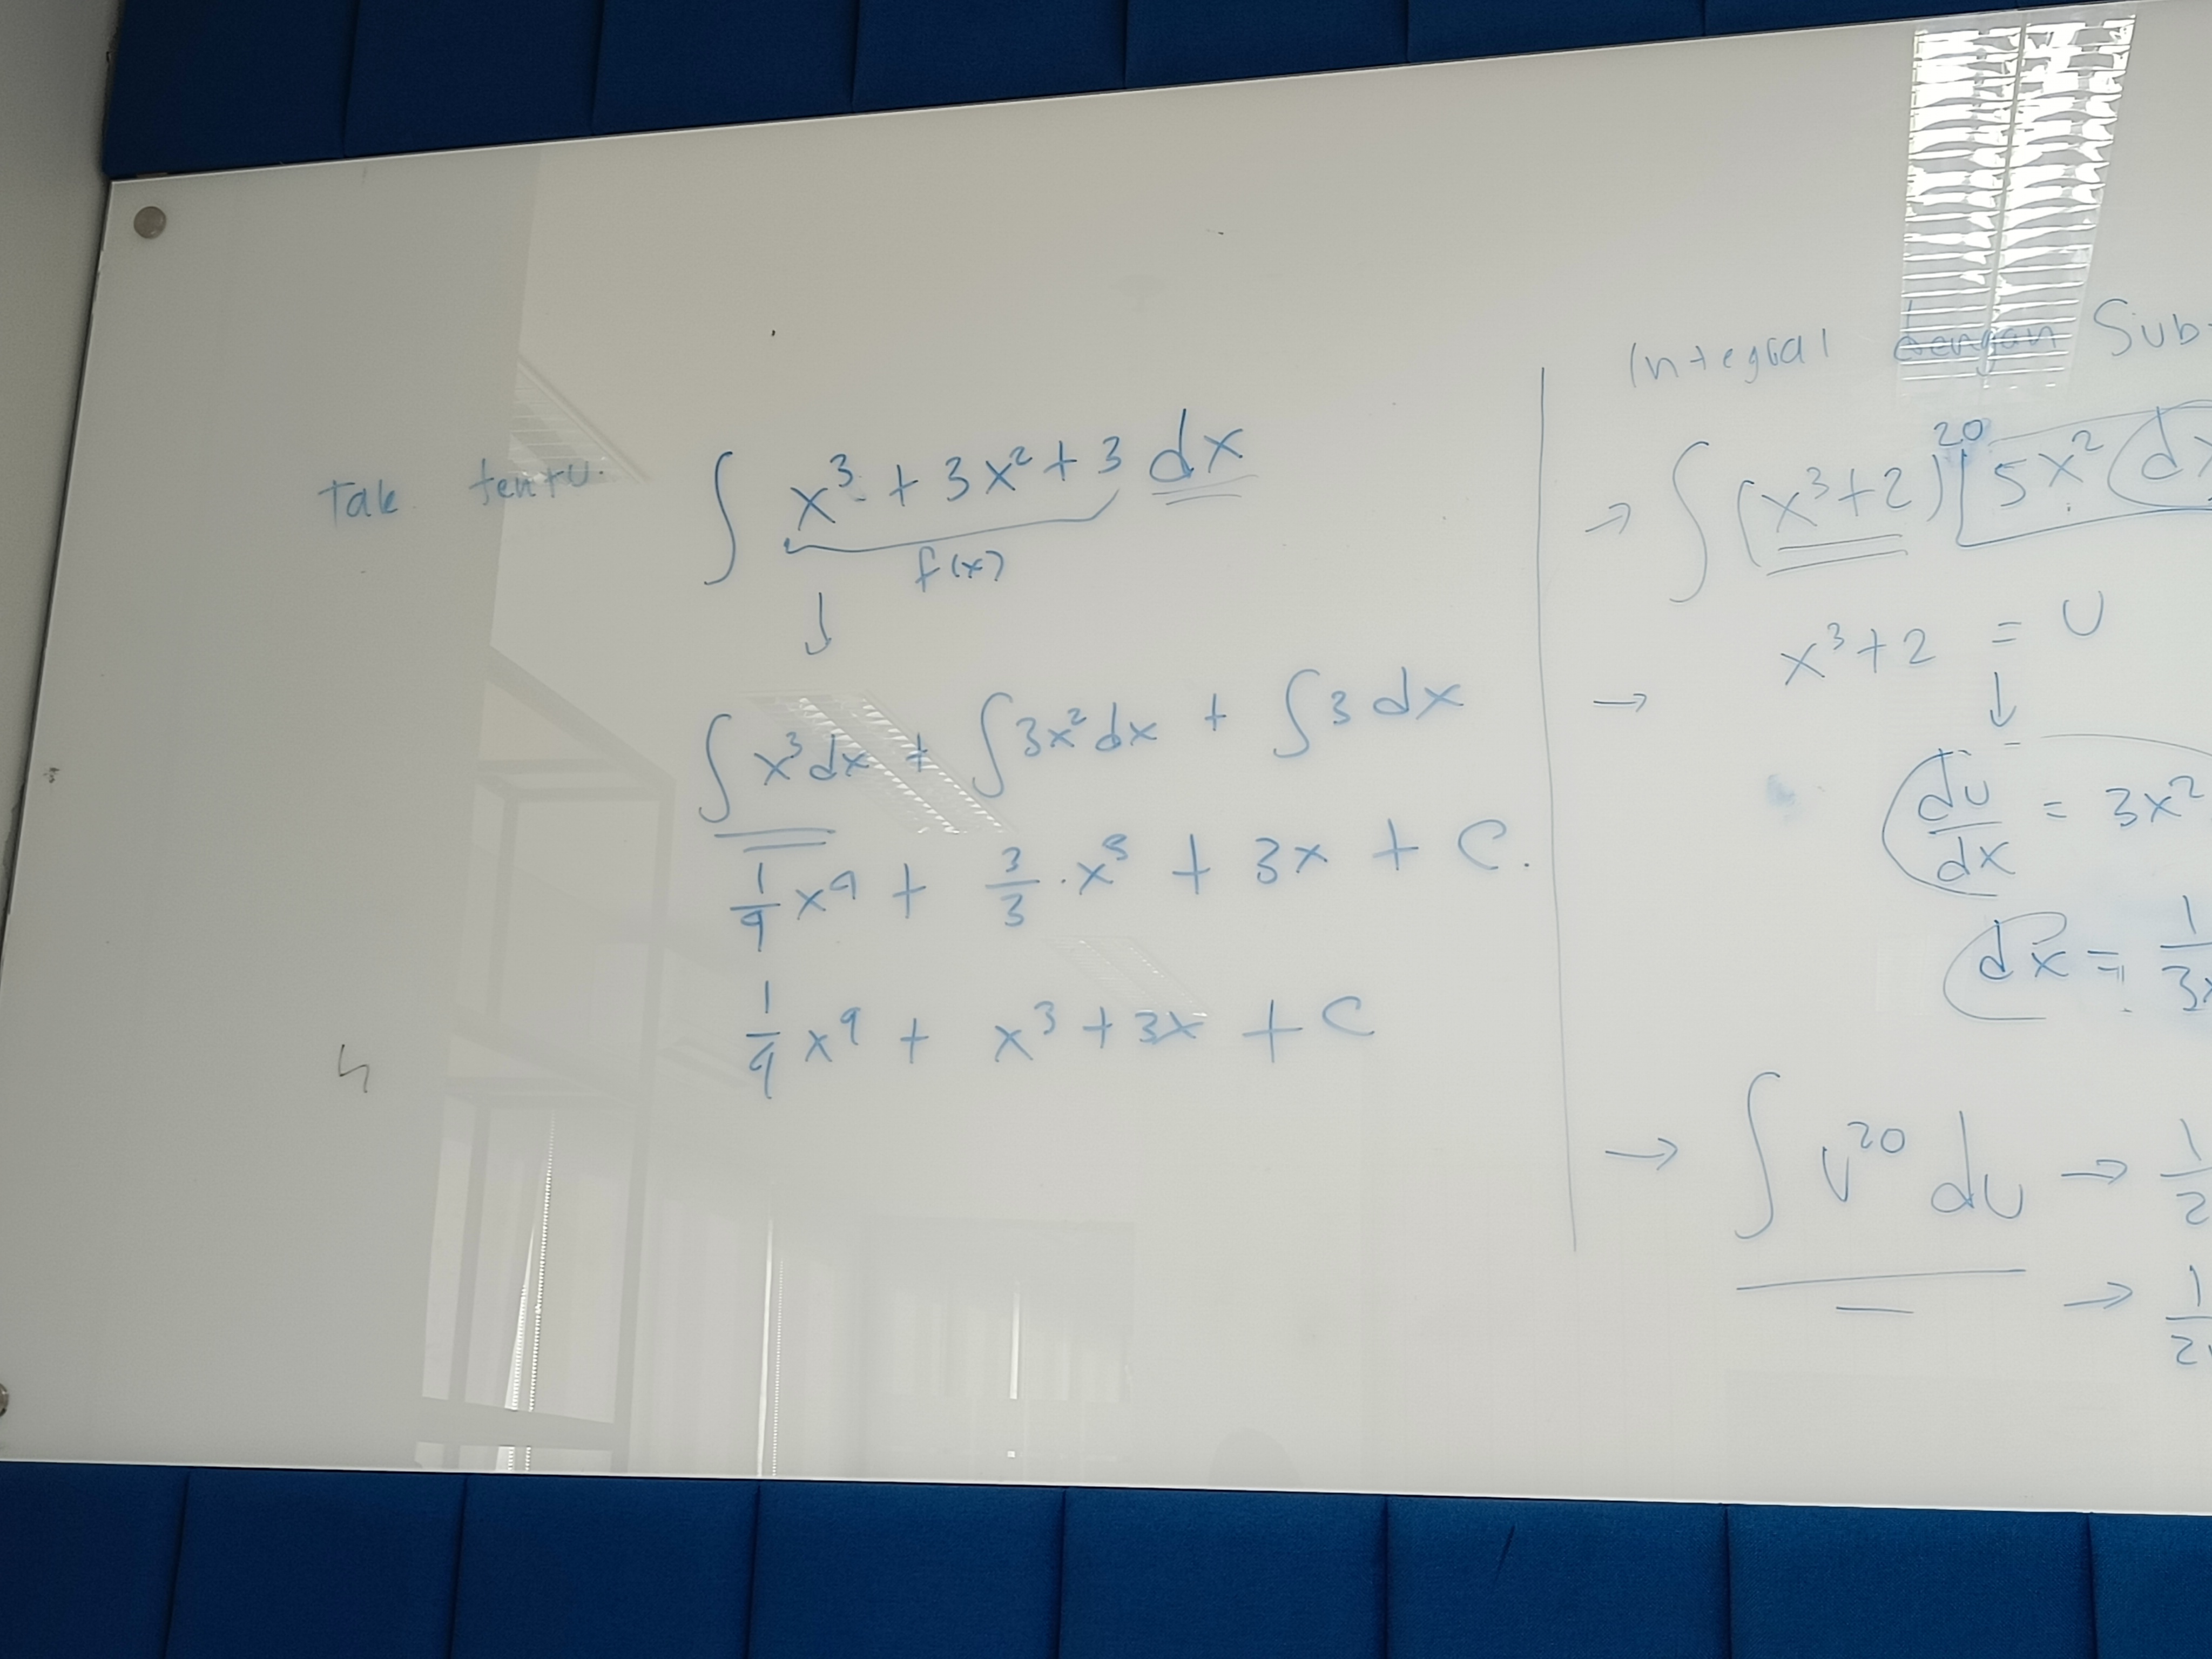 Tak tentu.
∫ x³ + 3x² + 3 dx
f(x)
↓
∫ x³ dx + ∫ 3x² dx + ∫ 3 dx
1/4 x⁴ + 3/3 . x³ + 3x + C.
1/4 x⁴ + x³ + 3x + C
Integral dengan Sub
→ ∫ (x³+2)²⁰ 5x² dx
→ x³+2 = U
↓
du/dx = 3x²
dx = 1/3x
→ ∫ U²⁰ du → 1/2
→ 1/2